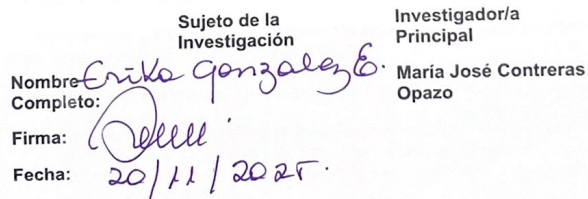 Sujeto de la Investigación
Investigador/a Principal
Nombre Completo: Erika Gonzalez E.
María José Contreras Opazo
Firma:
Fecha: 20/11/2025.